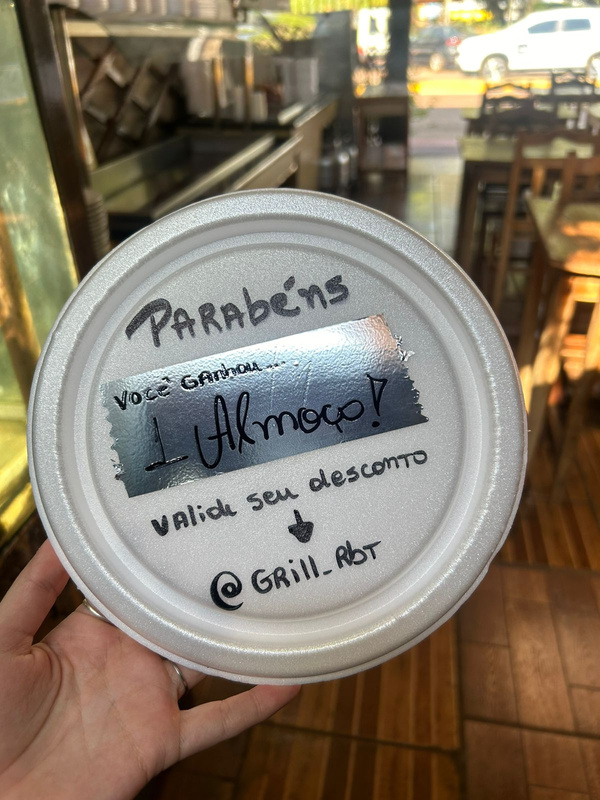 PARAbéns
Você GANhou...
1 Almoço!
VALide seu desconto
@GRill_RbT